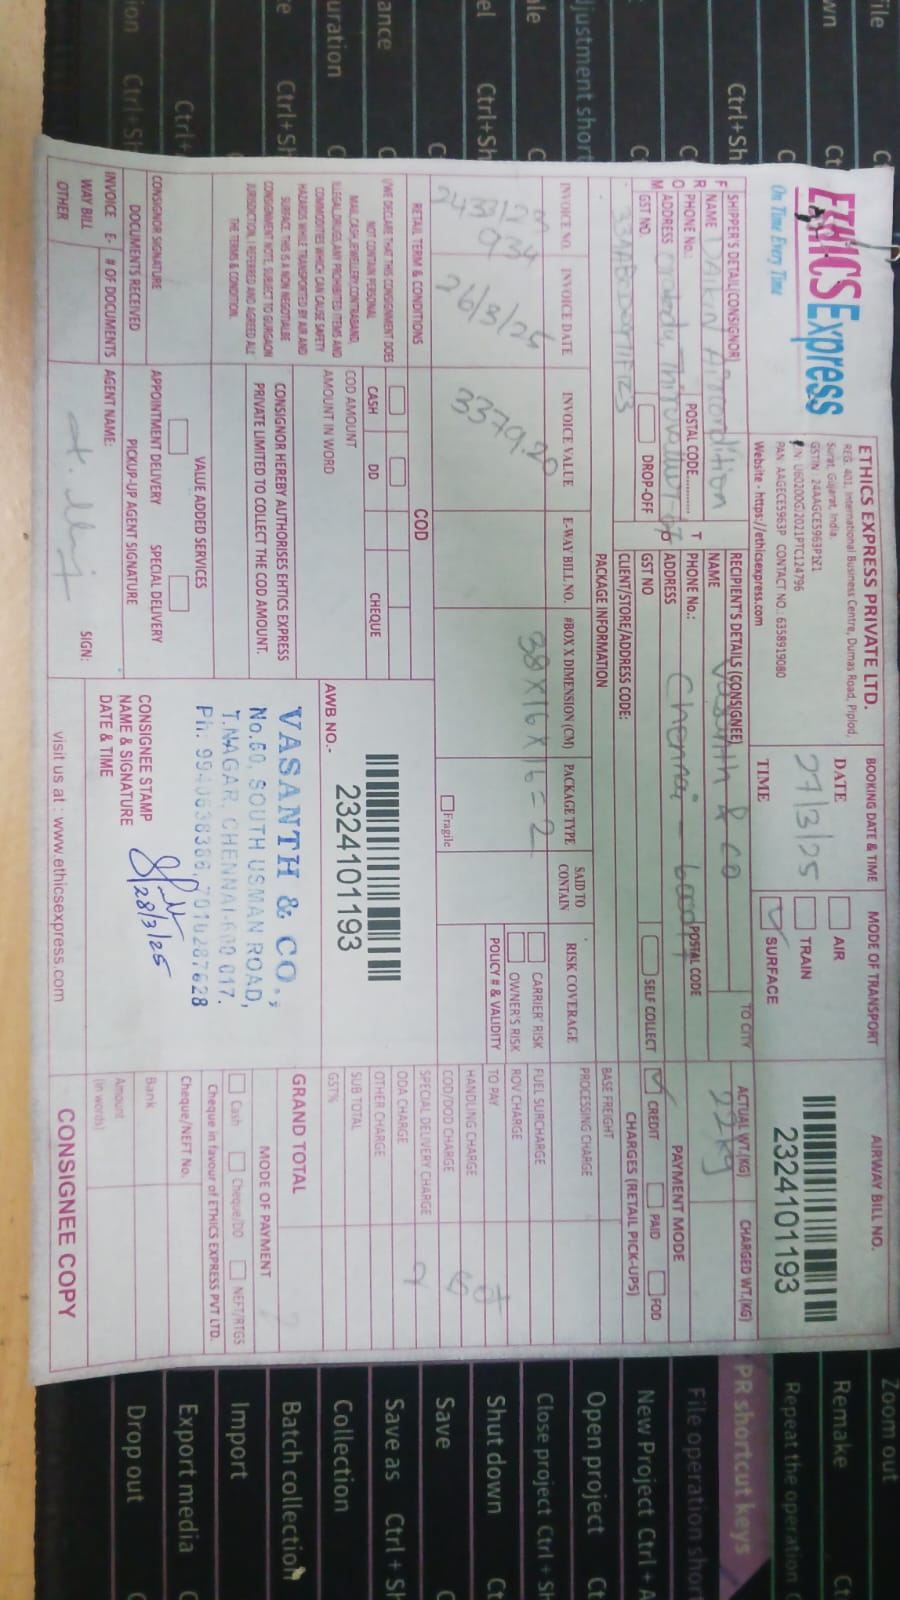 ETHICS Express
On Time Every Time
ETHICS EXPRESS PRIVATE LTD.
REG. 401, International Business Centre, Dumas Road, Piplod,
Surat, Gujarat, India.
GSTIN 24AAGCE5963P1Z1
U60200GJ2021PTC124796
PAN: AAGECE5963P CONTACT NO.: 6358919080
Website - https://ethicsexpress.com
BOOKING DATE & TIME
DATE
27/3/25
TIME
MODE OF TRANSPORT
AIR
TRAIN
SURFACE
AIRWAY BILL NO.
2324101193
SHIPPER'S DETAIL(CONSIGNOR)
FROM
NAME DAIKIN Aircondition
PHONE No.:
POSTAL CODE
ADDRESS
GST NO.
DROP-OFF
TO
RECIPIENT'S DETAILS (CONSIGNEE)
NAME Vasanth & co
PHONE No.:
POSTAL CODE
ADDRESS Chennai -
GST NO
SELF COLLECT
CLIENT/STORE/ADDRESS CODE:
TO CITY
ACTUAL WT.(KG)
22kg
CHARGED WT.(KG)
PAYMENT MODE
CREDIT
PAID
FOD
CHARGES (RETAIL PICK-UPS)
PACKAGE INFORMATION
INVOICE NO.
INVOICE DATE
INVOICE VALUE
E-WAY BILL NO.
#BOX X DIMENSION (CM)
PACKAGE TYPE
SAID TO CONTAIN
RISK COVERAGE
934
26/3/25
3379.20
38X16X16=2
Fragile
CARRIER' RISK
OWNER'S RISK
POLICY # & VALIDITY
PROCESSING CHARGE
BASE FREIGHT
FUEL SURCHARGE
ROV CHARGE
TO PAY
HANDLING CHARGE
COD/DOD CHARGE
SPECIAL DELIVERY CHARGE
ODA CHARGE
OTHER CHARGE
SUB TOTAL
GST%
GRAND TOTAL
RETAIL TERM & CONDITIONS
I/WE DECLARE THAT THIS CONSIGNMENT DOES
NOT CONTAIN PERSONAL
MAIL,CASH,JEWELLERY,CONTRABAND,
ILLEGAL DRUGS,ANY PROHIBITED ITEMS AND
COMMODITIES WHICH CAN CAUSE SAFETY
HAZARDS WHILE TRANSPORTED BY AIR AND
SURFACE. THIS IS A NON NEGOTIALBE
CONSIGNMENT NOTE, SUBJECT TO GURGAON
JURISDICTION. I REFERRED AND AGREED ALL
THE TERMS & CONDITION.
COD
CASH
DD
CHEQUE
COD AMOUNT
AMOUNT IN WORD
CONSIGNOR HEREBY AUTHORISES EHTICS EXPRESS
PRIVATE LIMITED TO COLLECT THE COD AMOUNT.
AWB NO.-
2324101193
VASANTH & CO.,
No.50, SOUTH USMAN ROAD,
T.NAGAR, CHENNAI-600 017.
28/3/25
CONSIGNEE STAMP
NAME & SIGNATURE
DATE & TIME
VALUE ADDED SERVICES
APPOINTMENT DELIVERY
SPECIAL DELIVERY
CONSIGNOR SIGNATURE
DOCUMENTS RECEIVED
INVOICE E-
WAY BILL
OTHER
# OF DOCUMENTS
PICKUP-UP AGENT SIGNATURE
AGENT NAME:
SIGN:
MODE OF PAYMENT
Cash
Cheque/DD
NEFT/RTGS
Cheque in favour of ETHICS EXPRESS PVT LTD.
Cheque/NEFT No.
Bank
Amount
(in words)
visit us at : www.ethicsexpress.com
CONSIGNEE COPY
Zoom out
Remake
Repeat the operation
PR shortcut keys
File operation short
New Project Ctrl + A
Open project
Close project Ctrl + Sh
Shut down
Save
Save as Ctrl + Sh
Collection
Batch collection
Import
Export media
Drop out